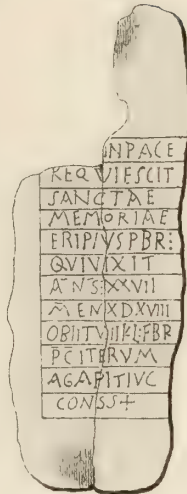 N PACE
REQVIESCIT
SANCTAE
MEMORIAE
ERIPIVS PBR:
QVI VIXIT
ANS: XXVII
MEN X D XVIII
OBIIT VIIII KL: FBR
PC ITERVM
AGAPITI VC
CONSS+